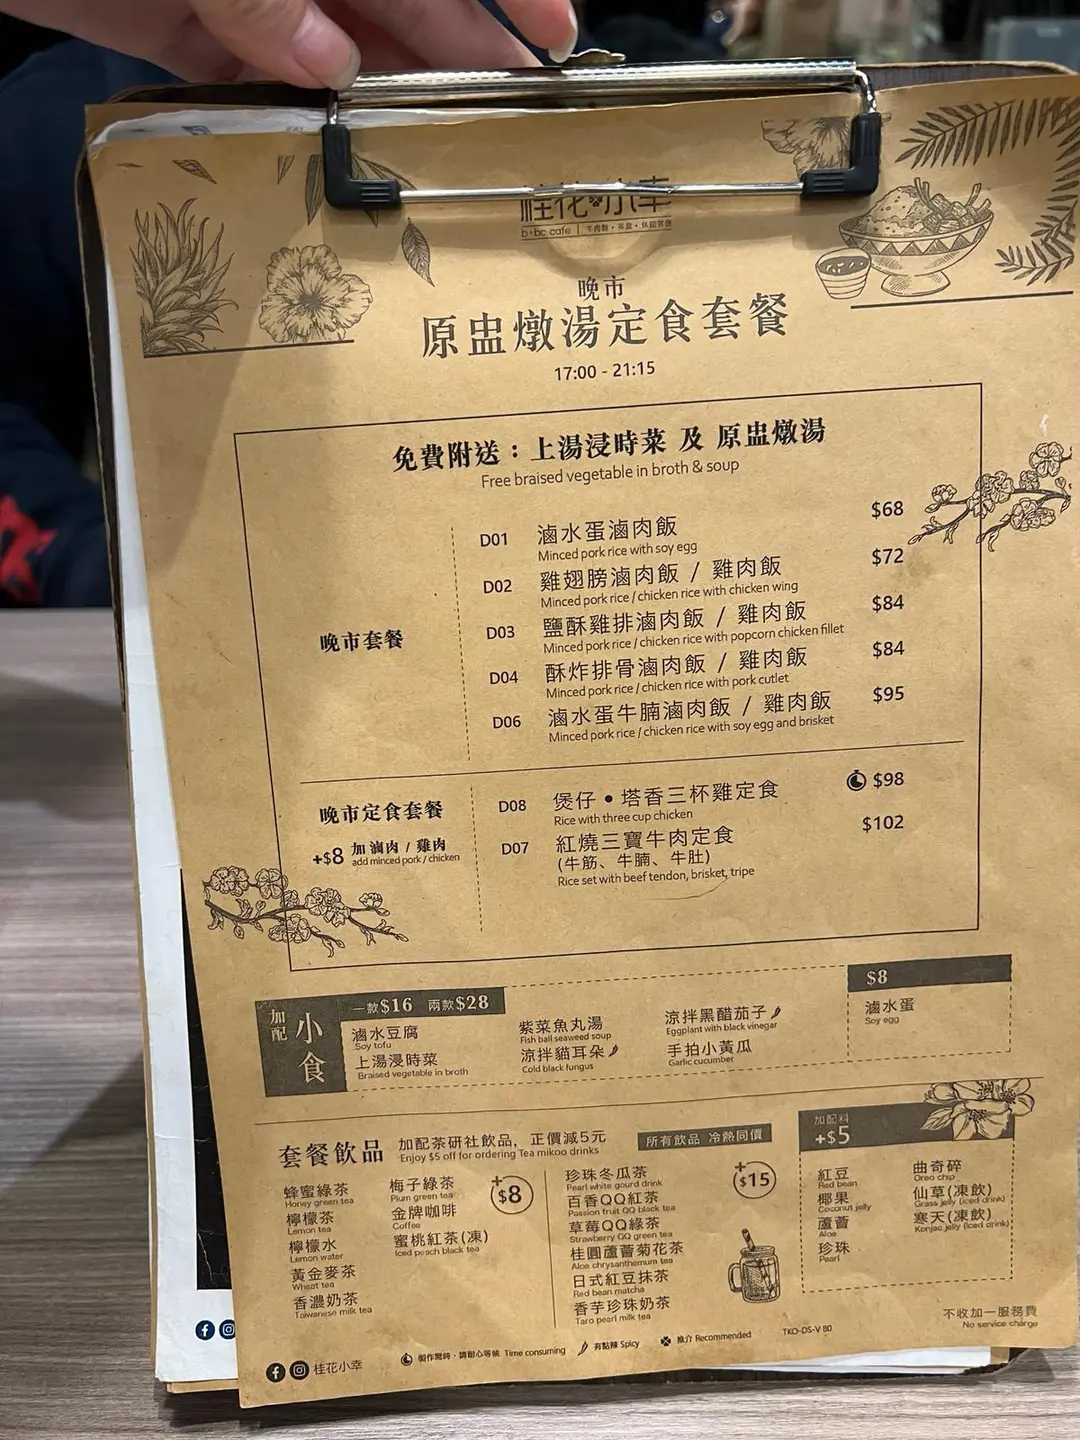 桂花小幸
b+bc cafe | 牛肉麵・茶飲・休閒餐廳
晚市
原盅燉湯定食套餐
17:00 - 21:15
免費附送：上湯浸時菜 及 原盅燉湯
Free braised vegetable in broth & soup
晚市套餐
D01 滷水蛋滷肉飯 $68
Minced pork rice with soy egg
D02 雞翅膀滷肉飯 / 雞肉飯 $72
Minced pork rice / chicken rice with chicken wing
D03 鹽酥雞排滷肉飯 / 雞肉飯 $84
Minced pork rice / chicken rice with popcorn chicken fillet
D04 酥炸排骨滷肉飯 / 雞肉飯 $84
Minced pork rice / chicken rice with pork cutlet
D06 滷水蛋牛腩滷肉飯 / 雞肉飯 $95
Minced pork rice / chicken rice with soy egg and brisket
晚市定食套餐
+$8 加滷肉 / 雞肉
add minced pork / chicken
D08 煲仔・塔香三杯雞定食 $98
Rice with three cup chicken
D07 紅燒三寶牛肉定食 $102
(牛筋、牛腩、牛肚)
Rice set with beef tendon, brisket, tripe
加配
小食
一款$16 兩款$28
滷水豆腐
Soy tofu
上湯浸時菜
Braised vegetable in broth
紫菜魚丸湯
Fish ball seaweed soup
涼拌貓耳朵
Cold black fungus
涼拌黑醋茄子
Eggplant with black vinegar
手拍小黃瓜
Garlic cucumber
$8
滷水蛋
Soy egg
套餐飲品
加配茶研社飲品，正價減5元
Enjoy $5 off for ordering Tea mikoo drinks
所有飲品 冷熱同價
蜂蜜綠茶
Honey green tea
檸檬茶
Lemon tea
檸檬水
Lemon water
黃金麥茶
Wheat tea
香濃奶茶
Taiwanese milk tea
梅子綠茶
Plum green tea
金牌咖啡
Coffee
蜜桃紅茶(凍)
Iced peach black tea
+$8
珍珠冬瓜茶
Pearl white gourd drink
百香QQ紅茶
Passion fruit QQ black tea
草莓QQ綠茶
Strawberry QQ green tea
桂圓蘆薈菊花茶
Aloe chrysanthemum tea
日式紅豆抹茶
Red bean matcha
香芋珍珠奶茶
Taro pearl milk tea
+$15
加配料
+$5
紅豆
Red bean
椰果
Coconut jelly
蘆薈
Aloe
珍珠
Pearl
曲奇碎
Oreo chip
仙草(凍飲)
Grass jelly (iced drink)
寒天(凍飲)
Konjac jelly (iced drink)
不收加一服務費
No service charge
桂花小幸
製作需時，請耐心等候 Time consuming
有點辣 Spicy
推介 Recommended
TKO-DS-V 80